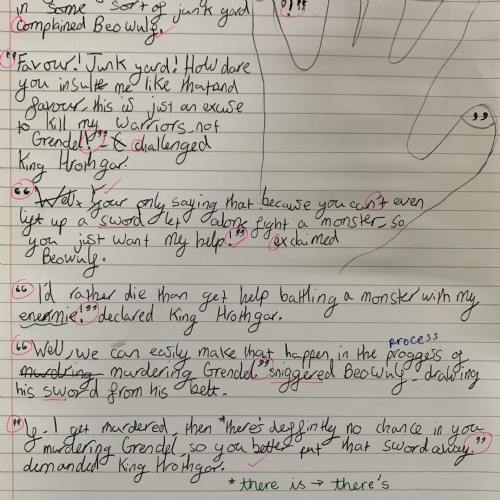 in some sort of junk yard
!"
Complained Beowulf.
"Favour! Junk yard! How dare
you insulte me like that and
favour, this is just an excuse
to kill my warriors, not
Grendel!" challenged
King Hrothgar.
"
"Well, Your only saying that because you can't even
light up a sword let alone fight a monster, so
you just want my help!" exclaimed
Beowulf.
"I'd rather die than get help battling a monster with my
enemie!" declared King Hrothgar.
process
"Well, we can easily make that happen in the proggess of
murdring murdering Grendel." sniggered Beowulf, drawing
his sword from his belt.
"If I get murdered, then *there's deffintly no chance in you
murdering Grendel, so you better put that sword away."
demanded King Hrothgar.
*there is → there's